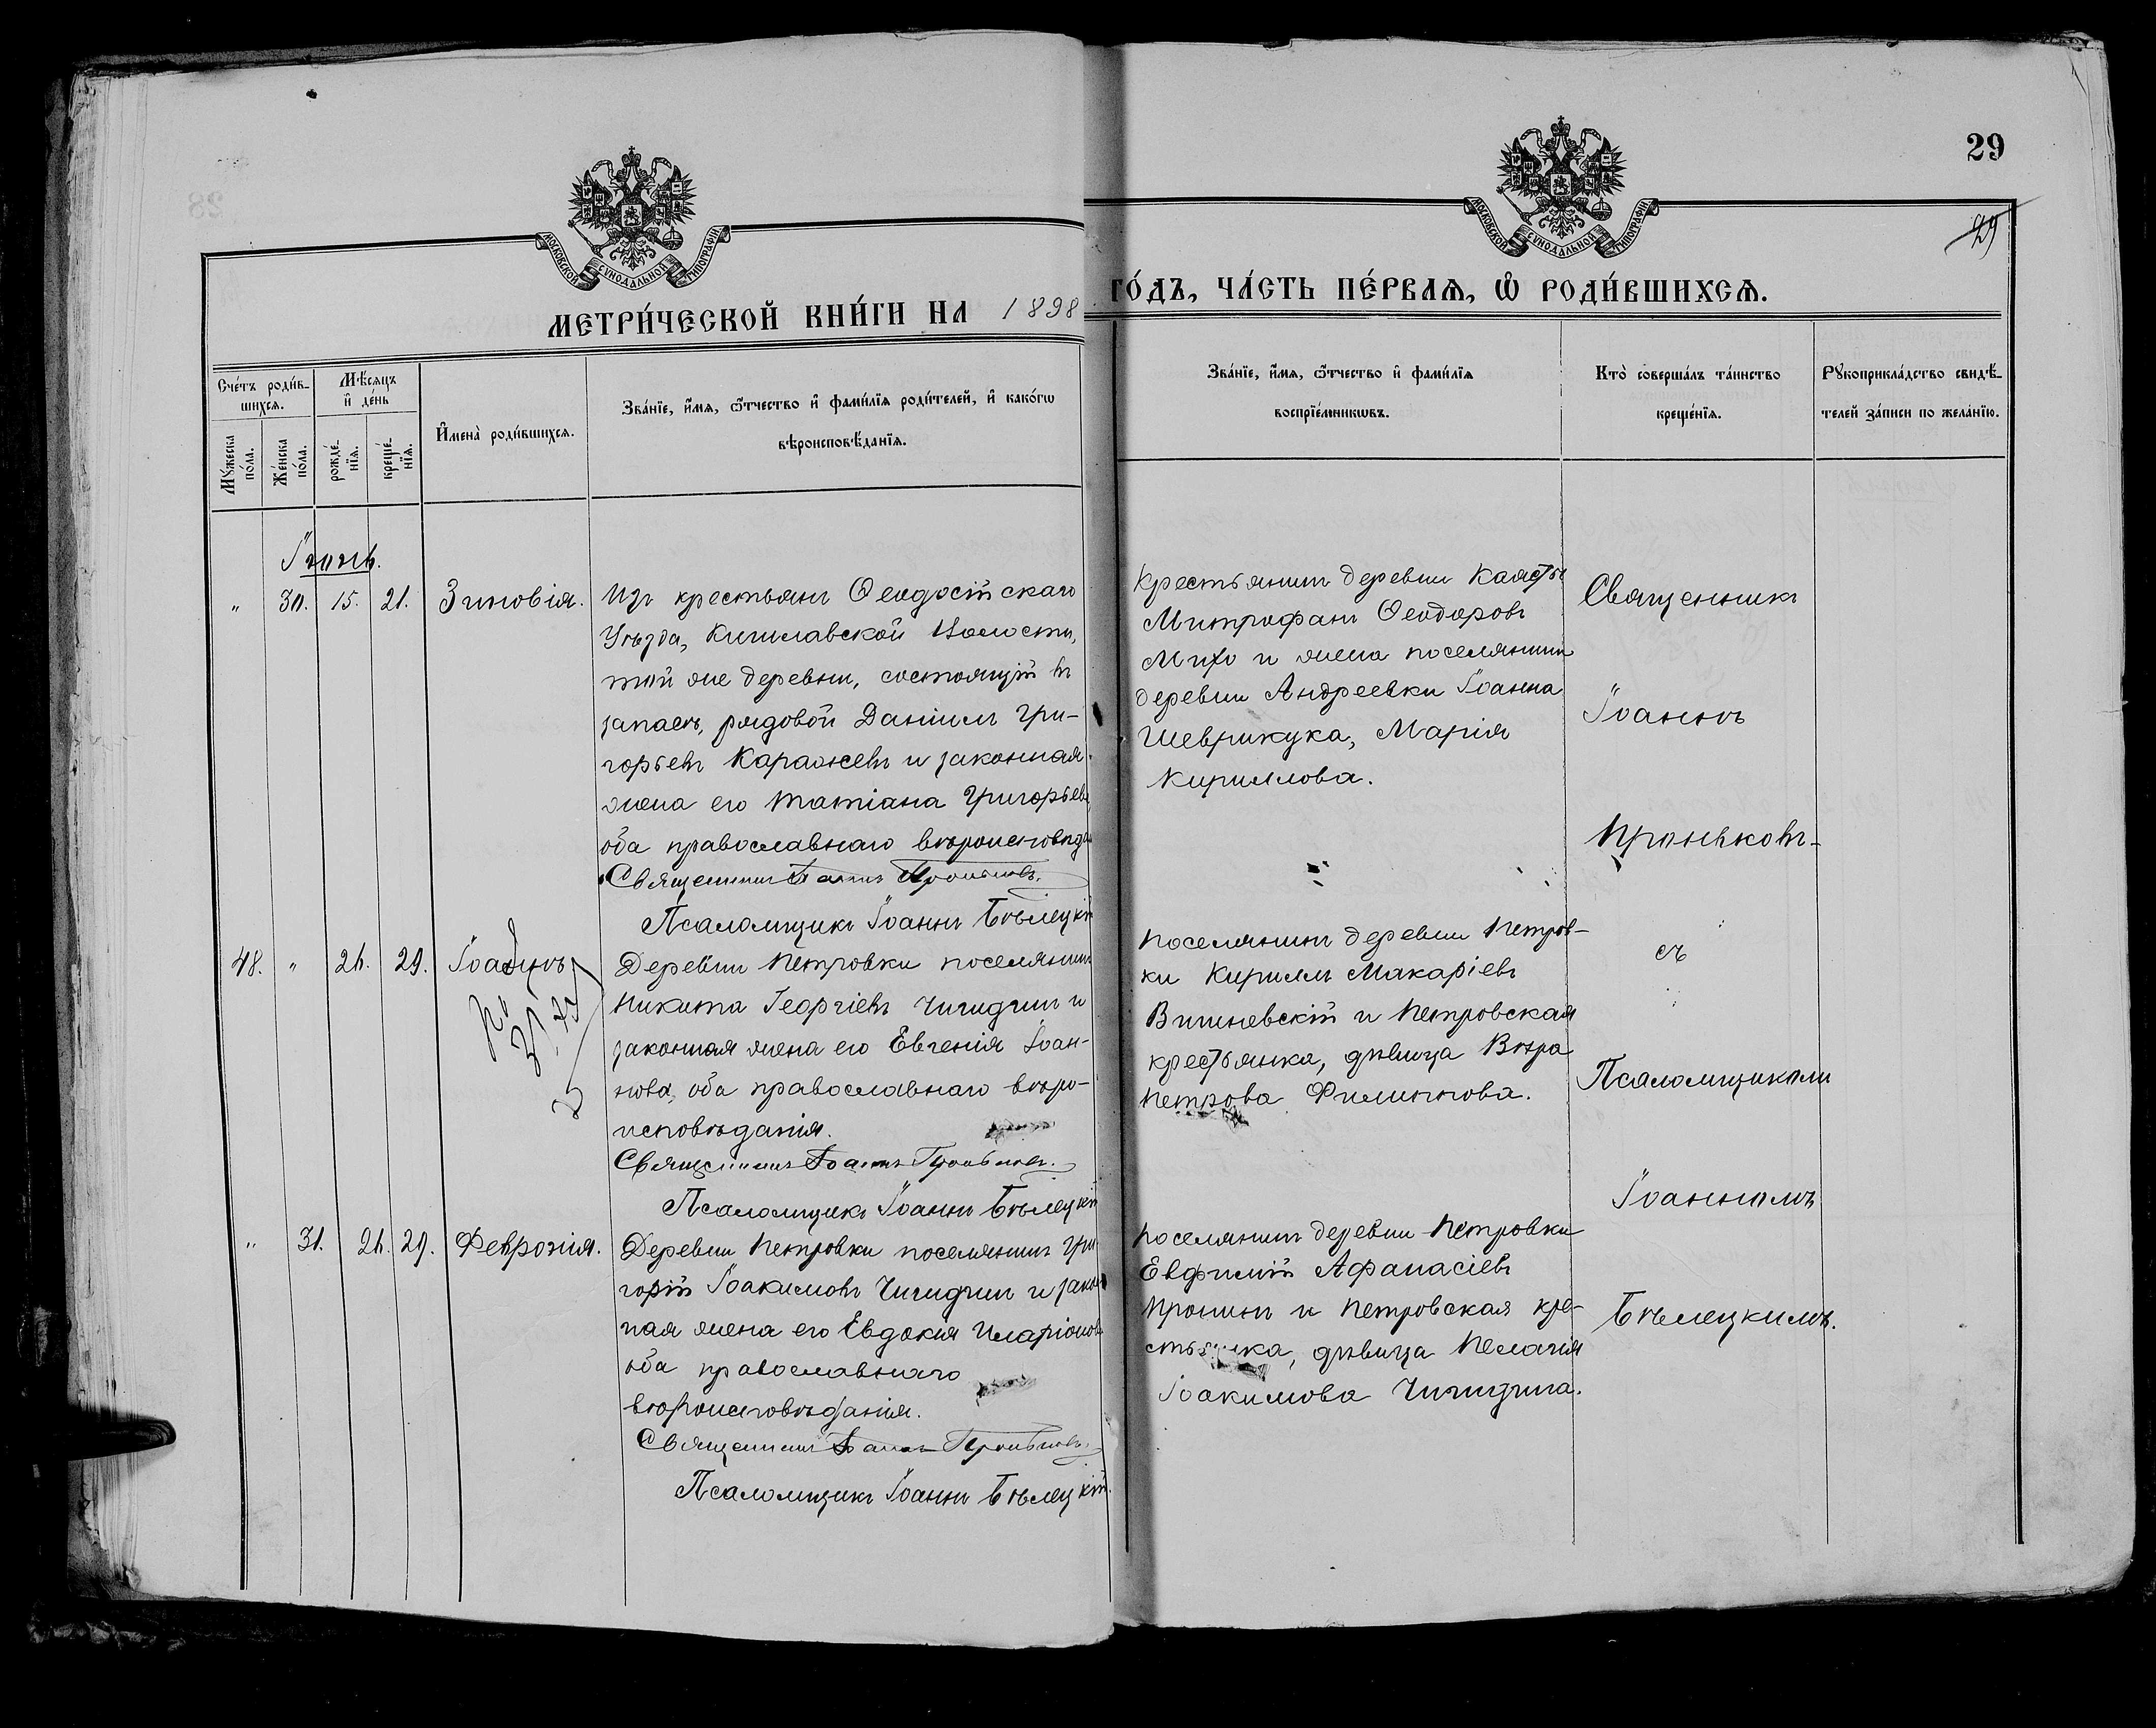 29
29
МОСКОВСКОЙ СѴНОДАЛЬНОЙ ТИПОГРАФІИ
МОСКОВСКОЙ СѴНОДАЛЬНОЙ ТИПОГРАФІИ
МЕТРИ́ЧЕСКОЙ КНИ́ГИ НА 1898 ГО́ДЪ, ЧА́СТЬ ПЕ́РВАѦ, Ѡ҆ РОДИ́ВШИХСѦ.
Сче́тъ роди́в-
шихсѧ.
Мѣ́сѧцъ
и҆ де́нь
Мꙋ́жеска
по́ла.
Же́нска
по́ла.
рожде́-
нїѧ.
креще́-
нїѧ.
И҆мена̀ роди́вшихсѧ.
Зва́нїе, и҆́мѧ, ѻ҆́тчество и҆ фами́лїѧ роди́телей, и҆ како́гѡ
вѣроисповѣ́данїѧ.
Зва́нїе, и҆́мѧ, ѻ҆́тчество и҆ фами́лїѧ
воспрїе́мникѡвъ.
Кто̀ соверша́лъ та́инство
креще́нїѧ.
Рꙋкоприкла́дство свидѣ́-
телей за́писи по жела́нїю.
Іюнь.
" 30. 15. 21. Зиновія.
Изъ крестьянъ Ѳеодосійскаго
Уѣзда, Кишлавской Волости,
той же деревни, состоящій въ
запасѣ, рядовой Даніилъ Гри-
горьевъ Каражевъ и законная
жена его Татіана Григорьева
оба православнаго вѣроисповѣда
Священникъ Іоаннъ Проньковъ.
Псаломщикъ Іоаннъ Бѣлецкій
Крестьянинъ деревни
Митрофанъ Ѳеодоровъ
Михо и жена поселянина
деревни Андреевки Іоанна
Шеврикука, Марія
Кириллова.
48. " 26. 29. Іоаннъ
Деревни Петровки поселянинъ
Никита Георгіевъ Чигидчин и
законная жена его Евгенія Іоан-
нова, оба православнаго вѣро-
исповѣданія.
Священникъ Іоаннъ Проньковъ.
Псаломщикъ Іоаннъ Бѣлецкій
Поселянинъ деревни Петров-
ки Кириллъ Макаріевъ
Вишневскій и Петровская
крестьянка, дѣвица Вѣра
Петрова Филиппова.
" 31. 26. 29. Февронія.
Деревни Петровки поселянинъ Гри
горій Іоакимовъ Чигидчин и закон
ная жена его Евдокія Иларіонова
оба православнаго
вѣроисповѣданія.
Священникъ Іоаннъ Проньковъ.
Псаломщикъ Іоаннъ Бѣлецкій.
Поселянинъ деревни Петровки
Евфимій Афанасіевъ
Пронинъ и Петровская кре-
стьянка, дѣвица Пелагія
Іоакимова Чигидчина.
Священникъ
Іоаннъ
Проньковъ
съ
Псаломщикомъ
Іоанномъ
Бѣлецкимъ.